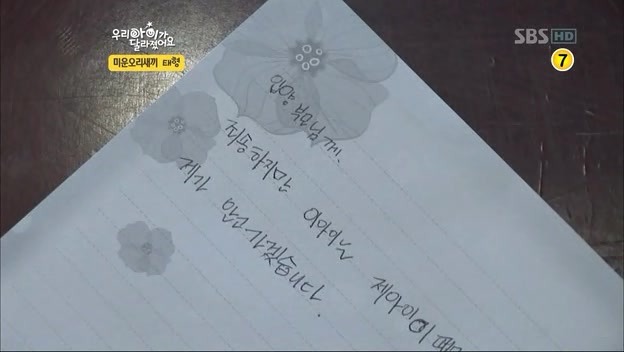 우리아이가
달라졌어요
미운오리새끼 태령
SBS HD
7
입양 부모님께.
죄송하지만 이아이는 제아이이 때
제가 안고 가겠습니다.